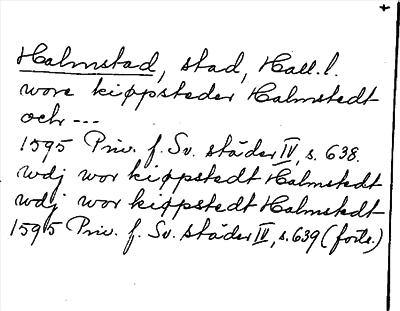 Halmstad, stad, Hall.l.
wore kiøpsteder Halmstedt
och ---
1595 Priv. f. Sv. städer IV, s. 638.
wdj wor kiøpstedt Halmstedt
wdj wor kiøpstedt Halmstedt
1595 Priv. f. Sv. städer IV, s. 639 (forts.)